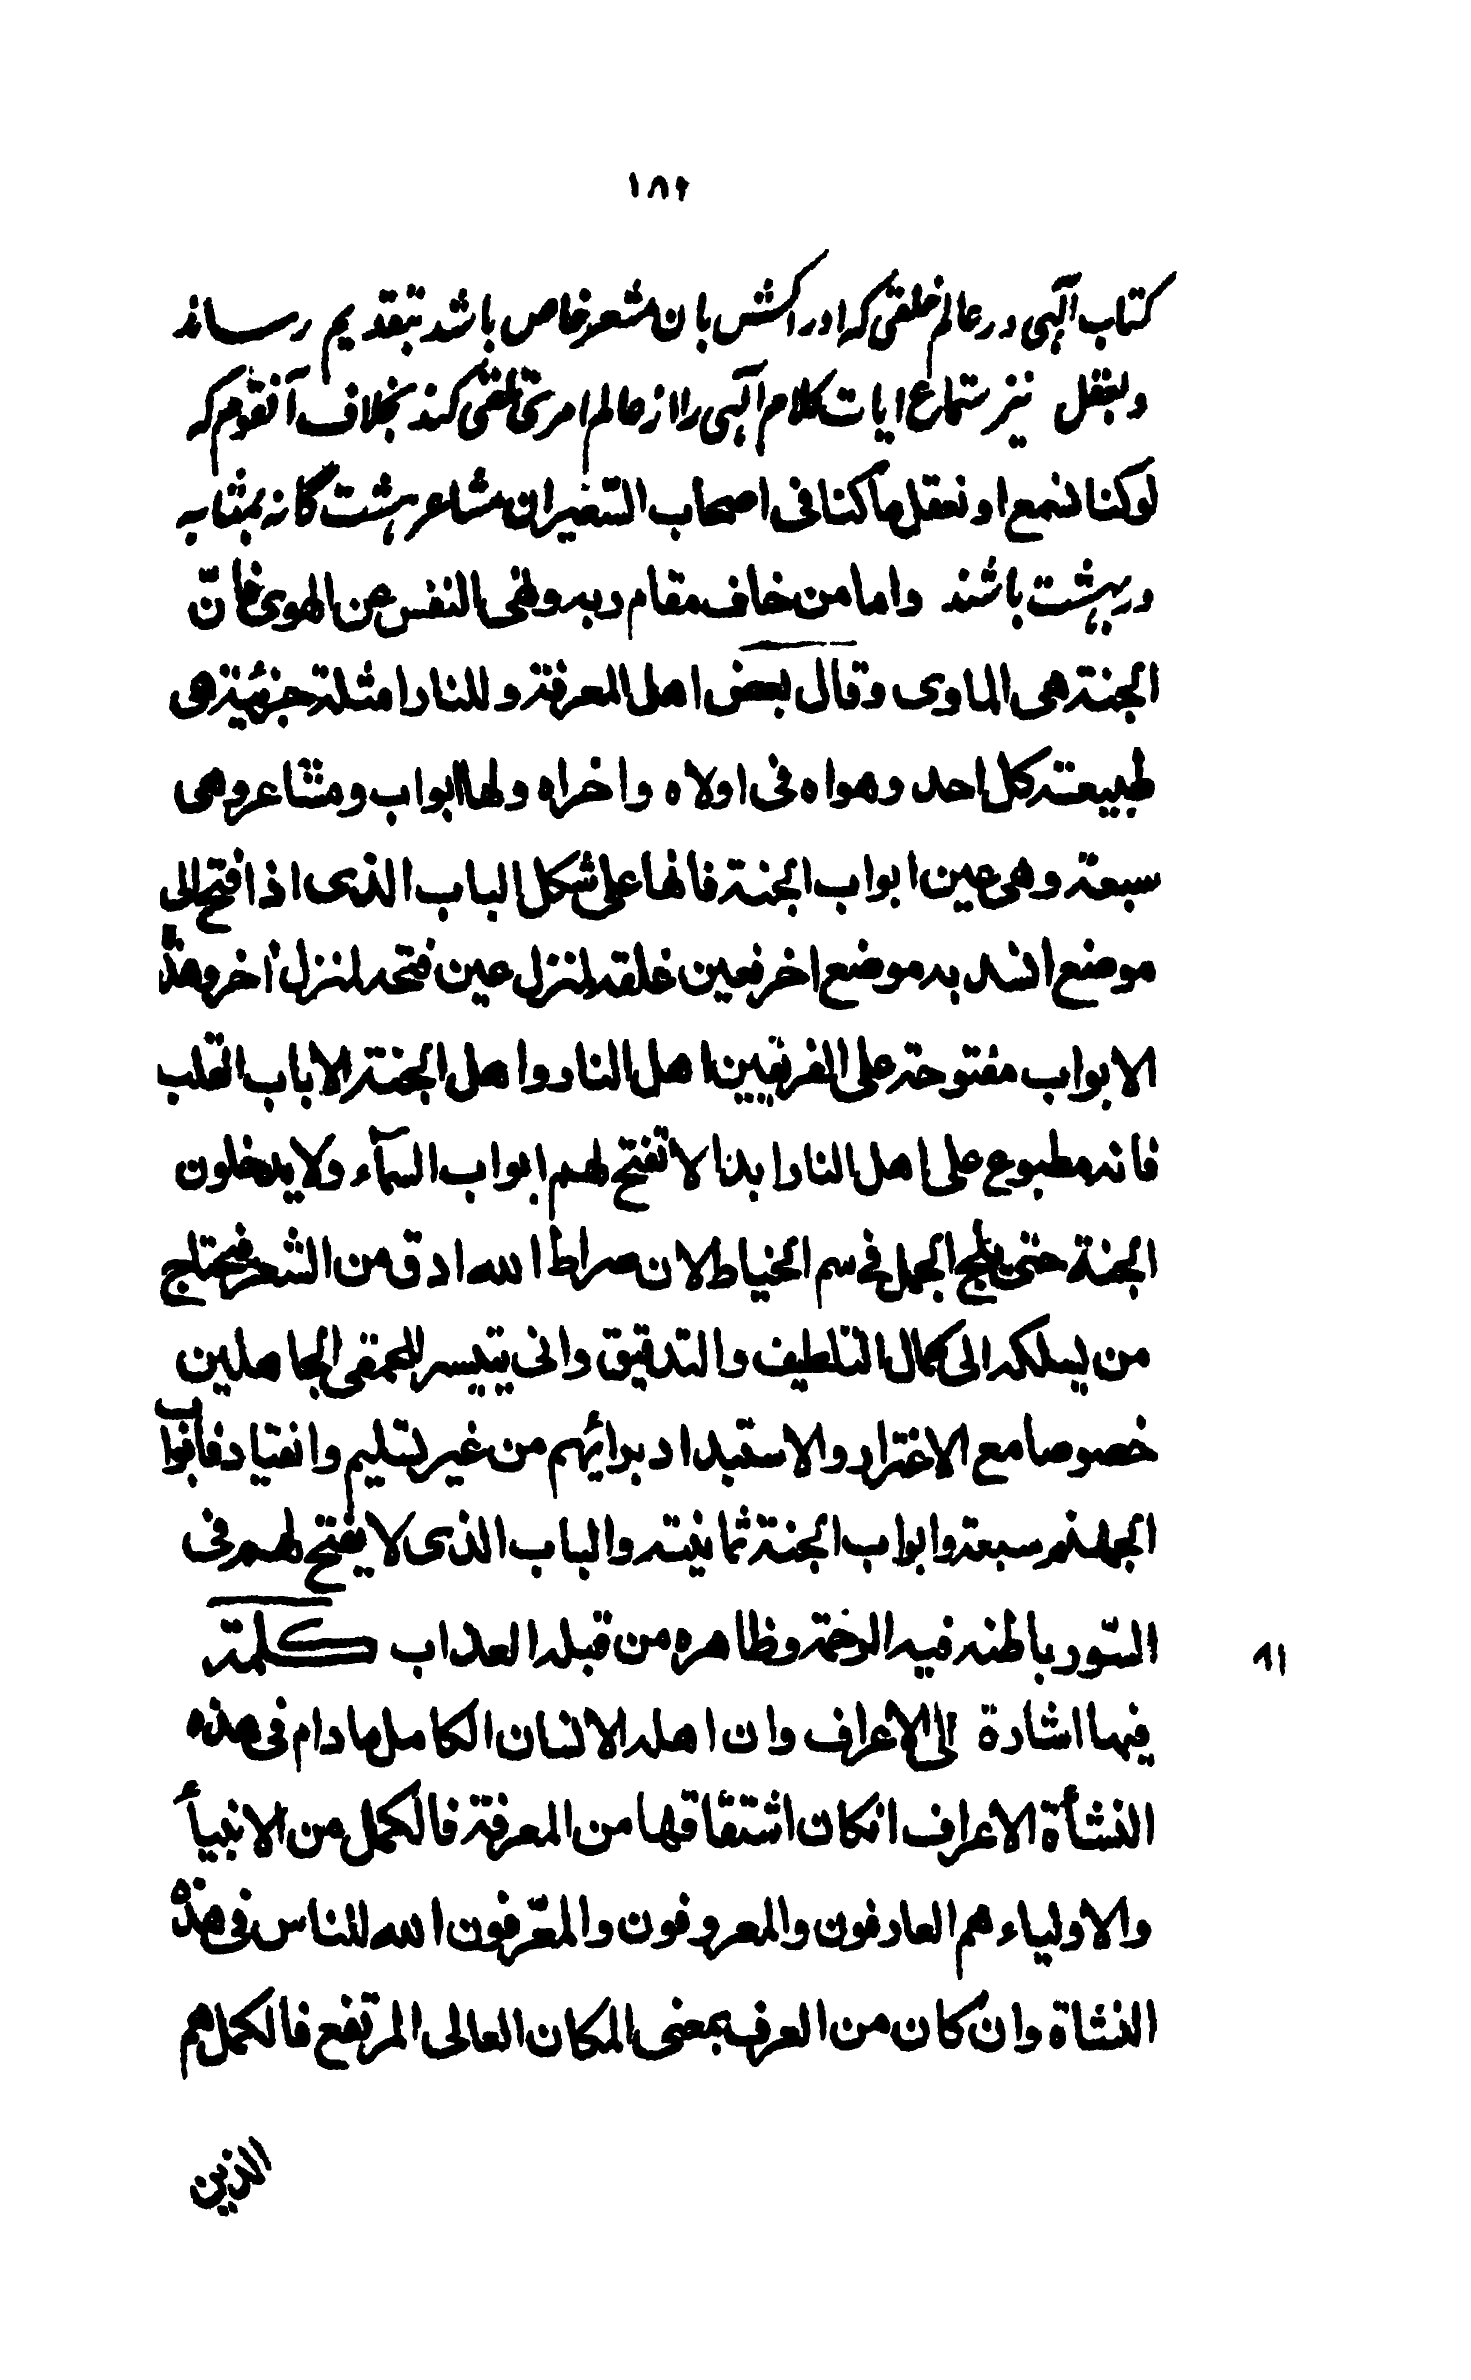 ١٨٢
کتاب الٓهی در عالم خلقی که ادراکش بان مشعر خاص باشد بتقدیم رساند
و بعقل نیز ستماع ایات کلام الٓهی را از عالم امری تلقی کند بخلاف آنقوم که
لو کنا نسمع او نعقل ما کنا فی اصحاب السّعیر ان مشاعر هشت گانه بمثابه
در بهشت باشند واما من خاف مقام ربه ونهی النفس عن الهوی فانّ
الجنة هی الماوی وقال بعض اهل المعرفة وللنار امثلة جزئیة هی
طبیعة کل احد وهواه فی اولاه واخراه ولها ابواب ومشاعر وهی
سبعة وهی عین ابواب الجنة فانها علی شکل الباب الذی اذا فتح الی
موضع انسد به موضع اخر فعین غلقه لمنزل عین فتحه لمنزل اخر وهذه
الابواب مفتوحة علی الفریقین اهل النار واهل الجنة الا باب القلب
فانه مطبوع علی اهل النار ابدا لا تفتح لهم ابواب السمآء ولا یدخلون
الجنة حتی یلج الجمل فی سم الخیاط لان صراط الله ادق من الشعر فیحتاج
من یسلکه الی کمال التلطیف والتدقیق وانی یتیسر للحمقی الجاهلین
خصوصا مع الاغترار والاستبداد برائهم من غیر تسلیم وانقیاد فابواب
الجهنم سبعة وابواب الجنة ثمانیته والباب الذی لا یفتح لهم فی
السّور باطنه فیه الرحمة وظاهره من قبله العذاب کلمة
٨١
فیها اشارة الی الاعراف وان اهله الانسان الکامل ما دام فی هذه
النشأة الاعراف انکان اشتقاقها من المعرفة فالکمل من الانبیأ
والاولیاء هم العارفون والمعروفون والمعّرفون الله للناس فی هذه
النشاة وان کان من العرف بمعنی المکان العالی المرتفع فالکمل هم
الذین